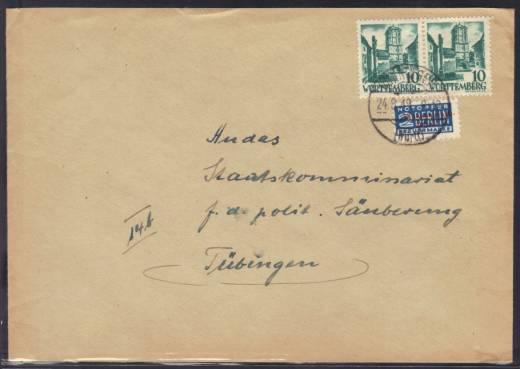 10 10
WÜRTTEMBERG WÜRTTEMBERG
24.9.49
NOTOPFER
2 BERLIN
STEUERMARKE
(WÜRTT)
An das
Staatskommissariat
f. d. polit. Säuberung
Tübingen